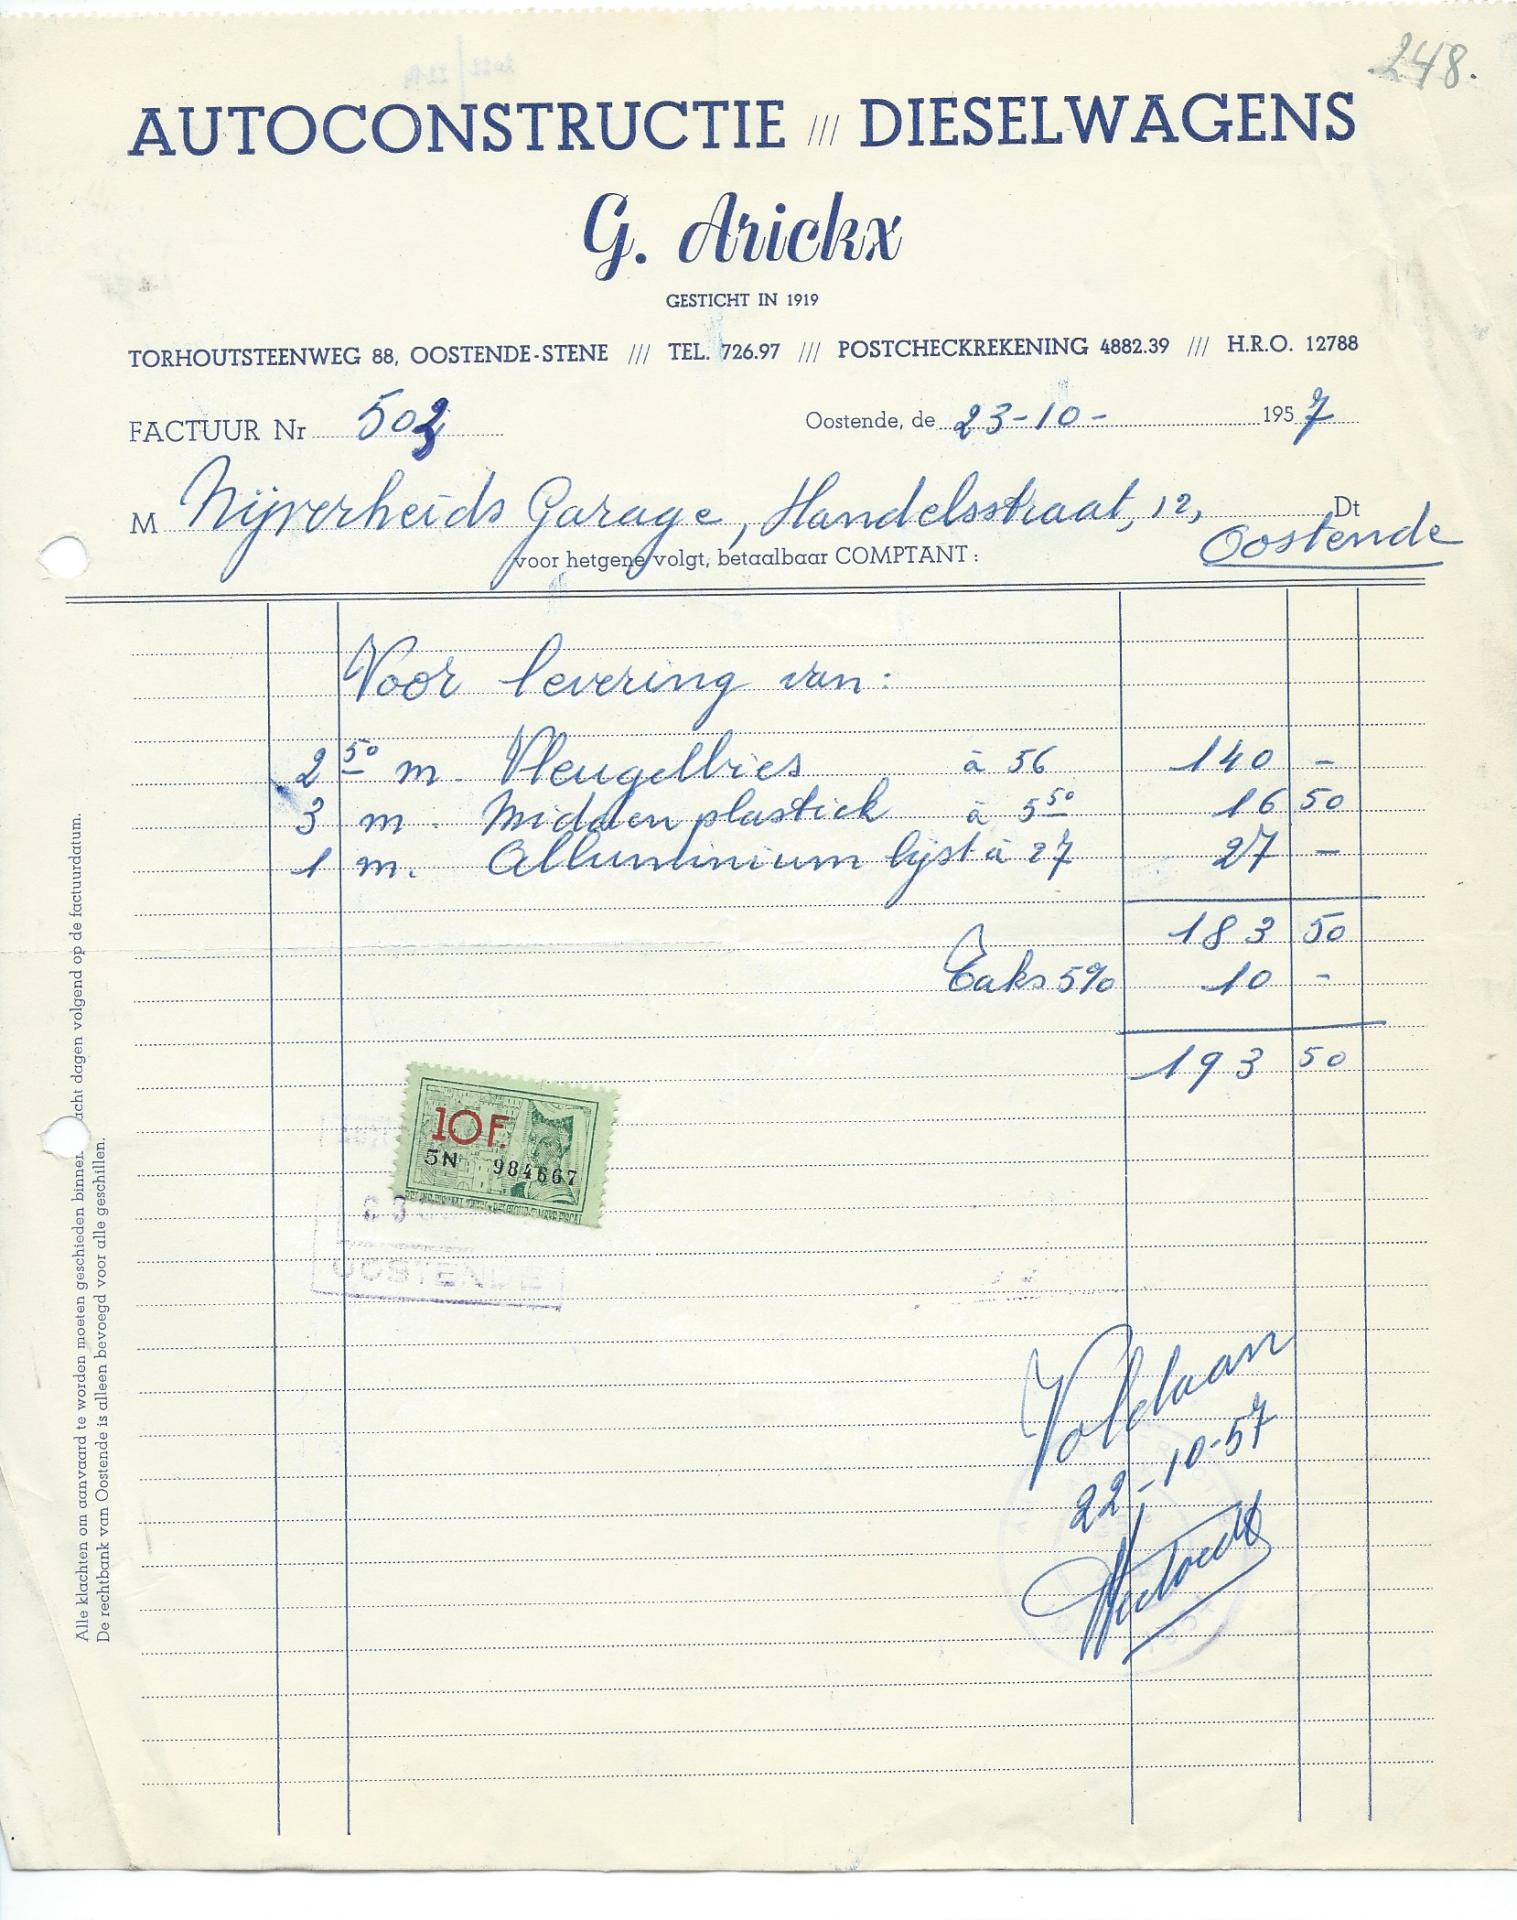 248.
AUTOCONSTRUCTIE /// DIESELWAGENS
G. Arickx
GESTICHT IN 1919
TORHOUTSTEENWEG 88, OOSTENDE-STENE /// TEL. 726.97 /// POSTCHECKREKENING 4882.39 /// H.R.O. 12788
FACTUUR Nr 503 Oostende, de 23-10- 1957
M Nijverheids Garage, Handelsstraat, 12, Dt
Oostende
voor hetgene volgt, betaalbaar COMPTANT :
Voor levering van:
2 50 m. Vleugelbies à 56 140 -
3 m. Midden plastiek à 5 50 16 50
1 m. Alluminium lijst à 27 27 -
183 50
Taks 5% 10 -
193 50
10 F.
5N 984667
OOSTENDE
Voldaan
22-10-57
Alle klachten om aanvaard te worden moeten geschieden binnen acht dagen volgend op de factuurdatum.
De rechtbank van Oostende is alleen bevoegd voor alle geschillen.